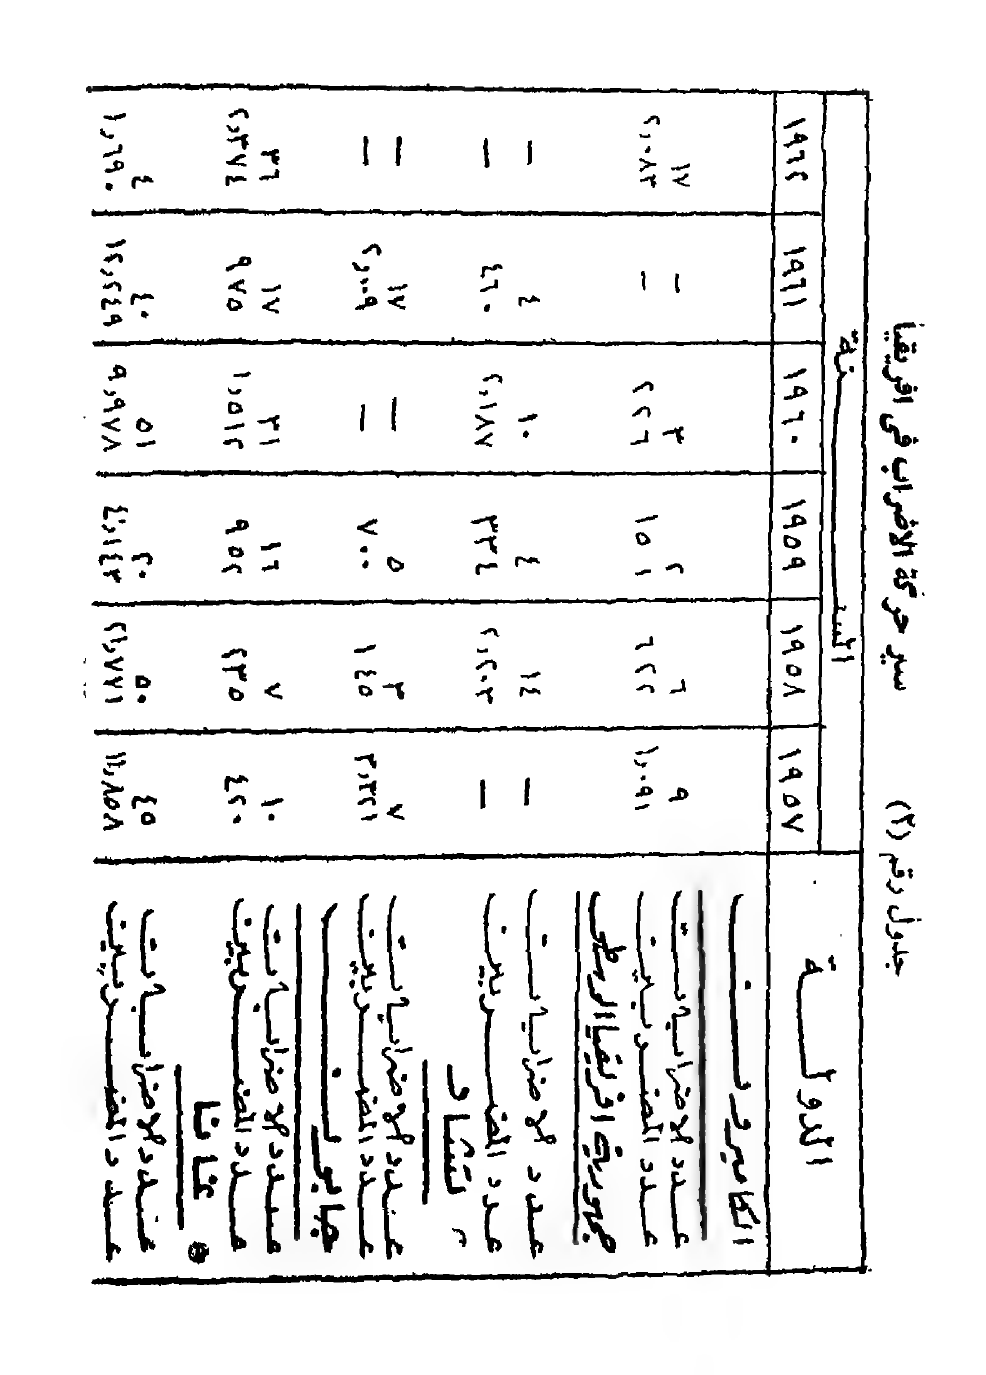 جدول رقم (٣) سير حركة الاضراب فى افريقيا
الدولة السنة
١٩٥٧ ١٩٥٨ ١٩٥٩ ١٩٦٠ ١٩٦١ ١٩٦٢
الكاميرون
عدد الاضرابات ٩ ٦ ٢ ٣ — ١٧
عدد المضربين ١,٠٩١ ٦٢٢ ١٥١ ٢٢٦ — ٢,٠٨٣
جمهورية افريقيا الوسطى
عدد الاضرابات — ١٤ ٤ ١٠ ٤ —
عدد المضربين — ٢,٢٠٣ ٣٣٤ ٢,١٨٧ ٤٦٠ —
تشاد
عدد الاضرابات ٧ ٣ ٥ — ١٧ —
عدد المضربين ٣,٣٢١ ١٤٥ ٧٠٠ — ٢,٠٠٩ —
جابون
عدد الاضرابات ١٠ ٧ ١٦ ٣١ ١٧ ٣٦
عدد المضربين ٤٢٠ ٤٣٥ ٩٥٢ ١,٥١٢ ٩٧٥ ٢,٣٧٤
غانا
عدد الاضرابات ٤٥ ٥٠ ٢٠ ٥١ ٤٠ ٤
عدد المضربين ١١,٨٥٨ ٢١,٧٧١ ٩,٩٧٨ ١٢,٢٤٩ ١,٦٩٠